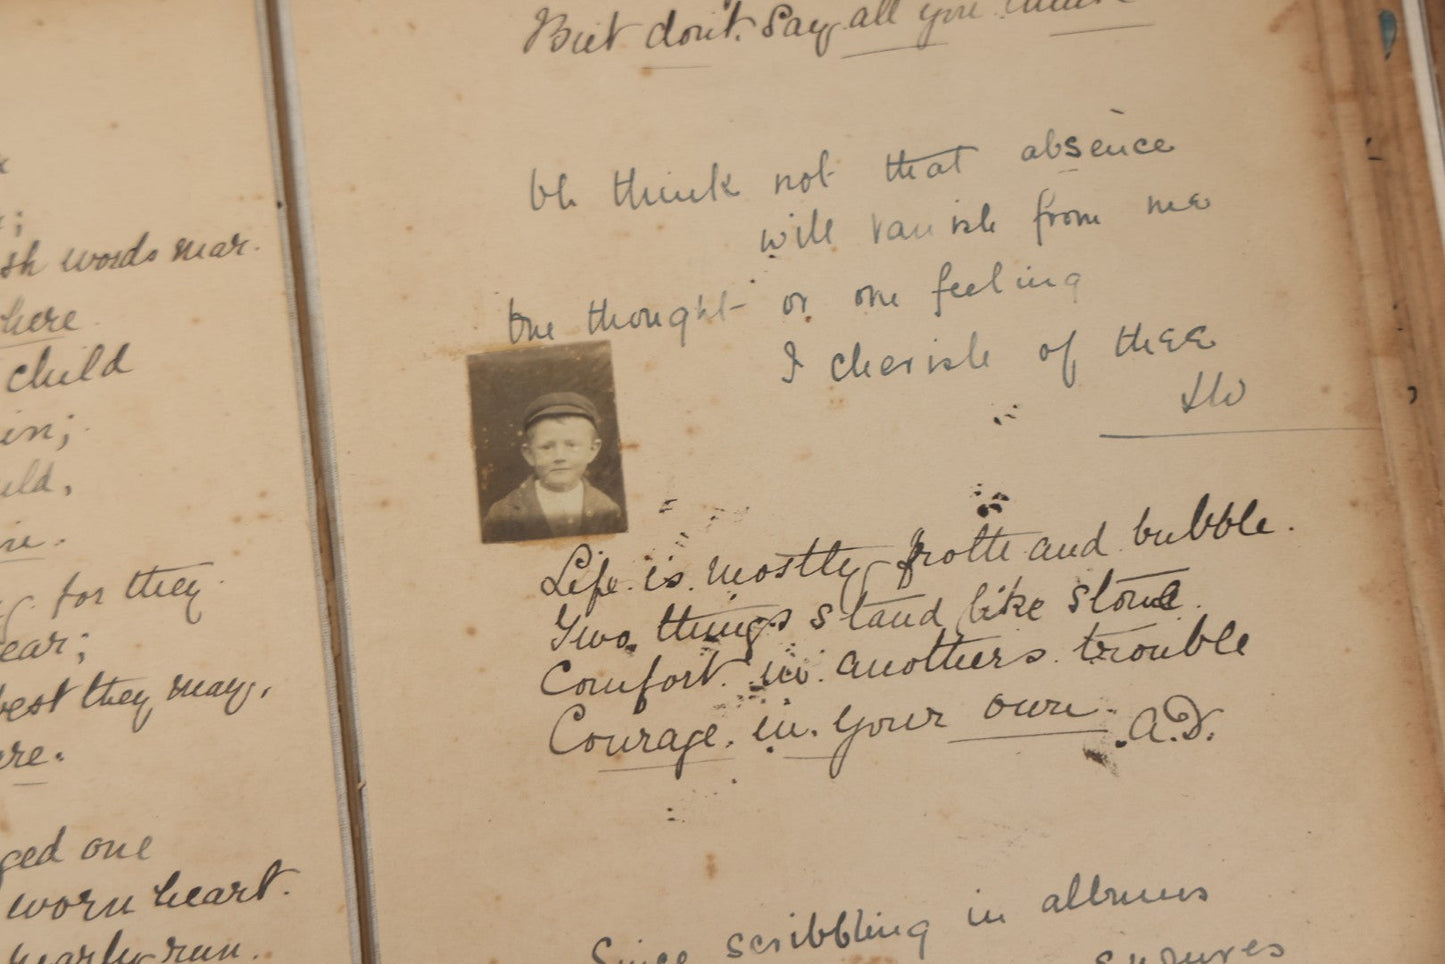 sh words mar.
here
child
in;
ild,
for they
ear;
best they may,
re.
ged one
worn heart.
nearly run.
But don't. Say all you
Oh think not that absence
will vanish from me
One thought or one feeling
I cherish of thee
Life is mostly froth and bubble.
Two things stand like stone.
Comfort in anothers trouble
Courage in your own. A.D.
Since scribbling in albums